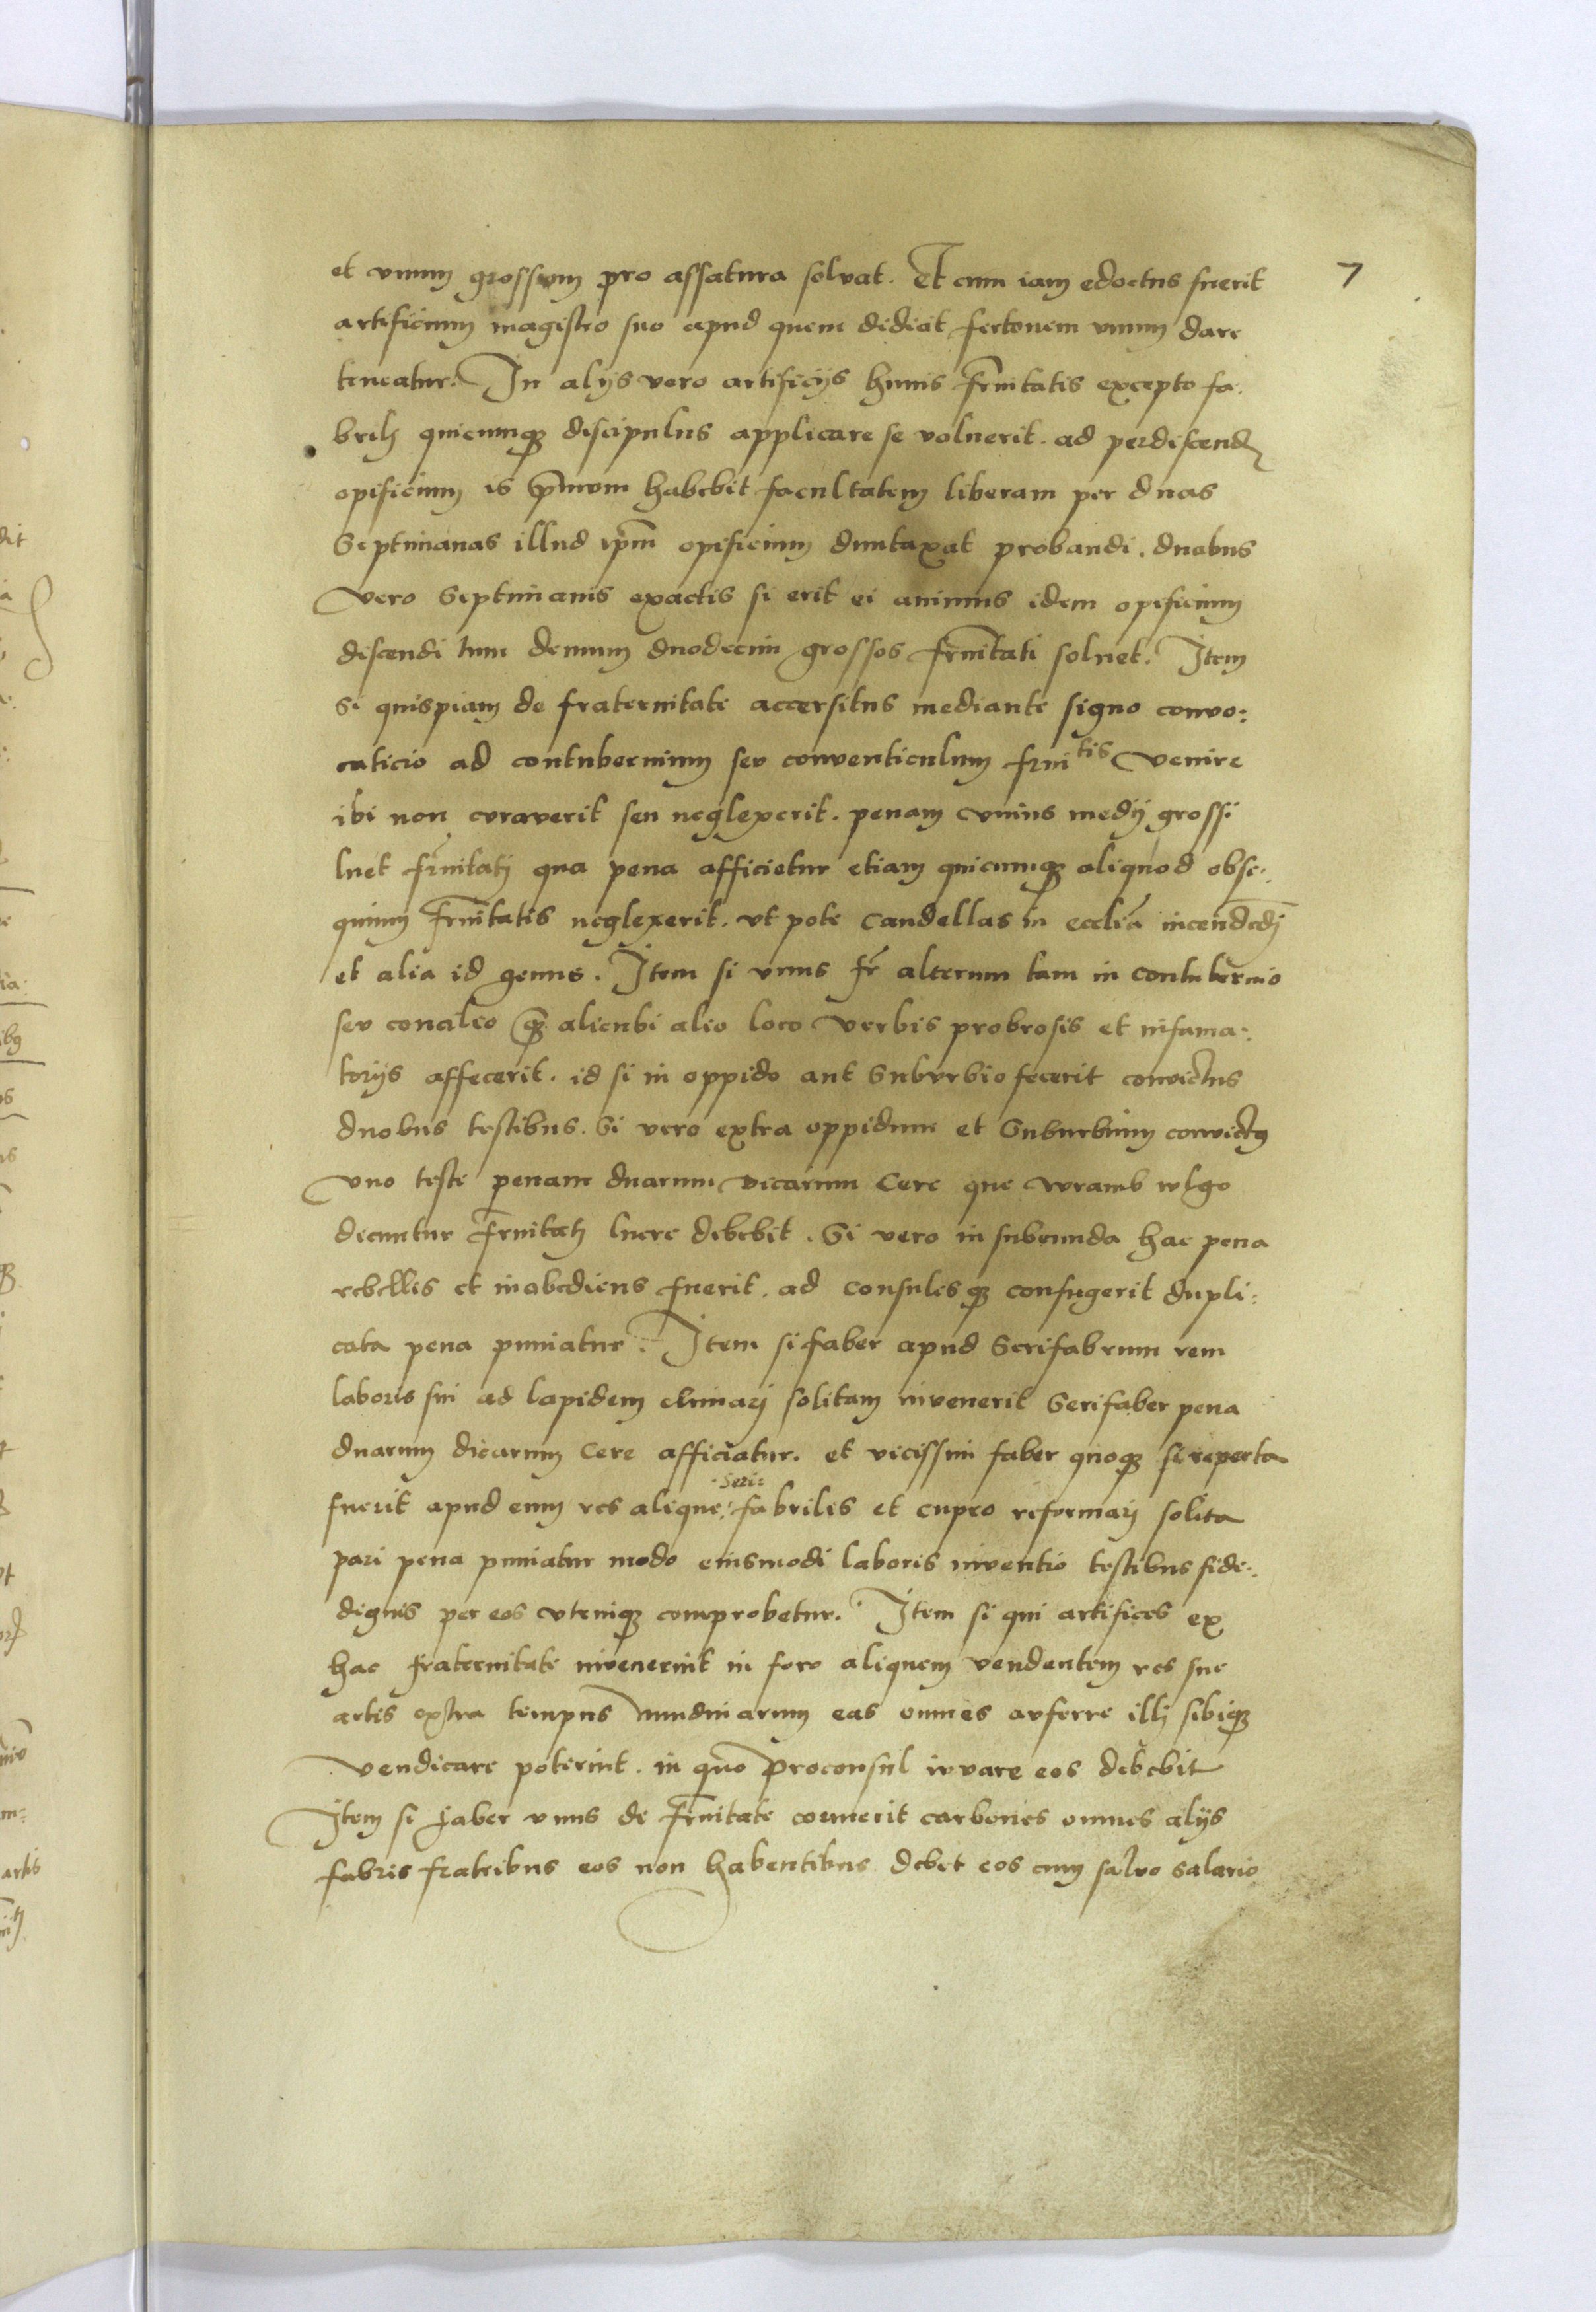 7
et vnum grossum pro assatura solvat. Et cum iam edoctus fuerit
artificium magistro suo apud quem didicit fertonem vnum dare
teneatur. In alijs vero artificijs huius frnitatis excepto fa:
brilj quicumqꝫ discipulus applicare se voluerit. ad perdiscend
opificium is prmum habebit facultatem liberam per duas
Septimanas illud ipm opificium duntaxat probandi. duabus
vero Septimanis exactis si erit ei animus idem opificium
discendi tum demum duodecim grossos frnitati soluet. Item
Si quispiam de fraternitate accersitus mediante signo convo:
caticio ad contubernium sev conventiculum frnitis venire
ibi non cvraverit seu neglexerit. penam vnius medij grossi
luet frnitatj qua pena afficietur etiam quicumqꝫ aliquod obse:
quium frnitatis neglexerit. vt pote candellas in ecclia incendedj
et alia id genus. Item si vnus fr alterum tam in contubernio
sev concilio qꝫ alicubi alio loco verbis probrosis et infama:
torijs affecerit. id si in oppido aut Subvrbio fecerit convictus
duobus testibus. Si vero extra oppidum et Suburbium convictꝰ
vno teste penam duarum dicarum Cere que wramb wlgo
dicuntur frnitatj luere debebit. Si vero in subeunda hac pena
rebellis et inabediens fuerit. ad Consulesqꝫ confugerit dupli:
cata pena puniatur. Item si faber apud Serifabrum rem
laboris sui ad lapidem elimarj solitam invenerit Serifaber pena
duarum dicarum Cere afficiatur. et vicissim faber quoqꝫ si reperta
fuerit apud eum res alique Seri:fabriles et cupro reformarj solita
pari pena puniatur modo eiusmodi laboris inventio testibus fide:
dignis per eos vtrinqꝫ comprobetur. Item si qui artifices ex
hac fraternitate invenerint in foro aliquem vendentem res sue
artis extra tempus nundinarum eas omnes avferre illj sibiqꝫ
vendicare poterint. in quo Proconsul iuvare eos debebit
Item si faber vnus de frnitate coemerit carbones omnes alijs
fabris fratribus eos non habentibus debet eos cum salvo salario